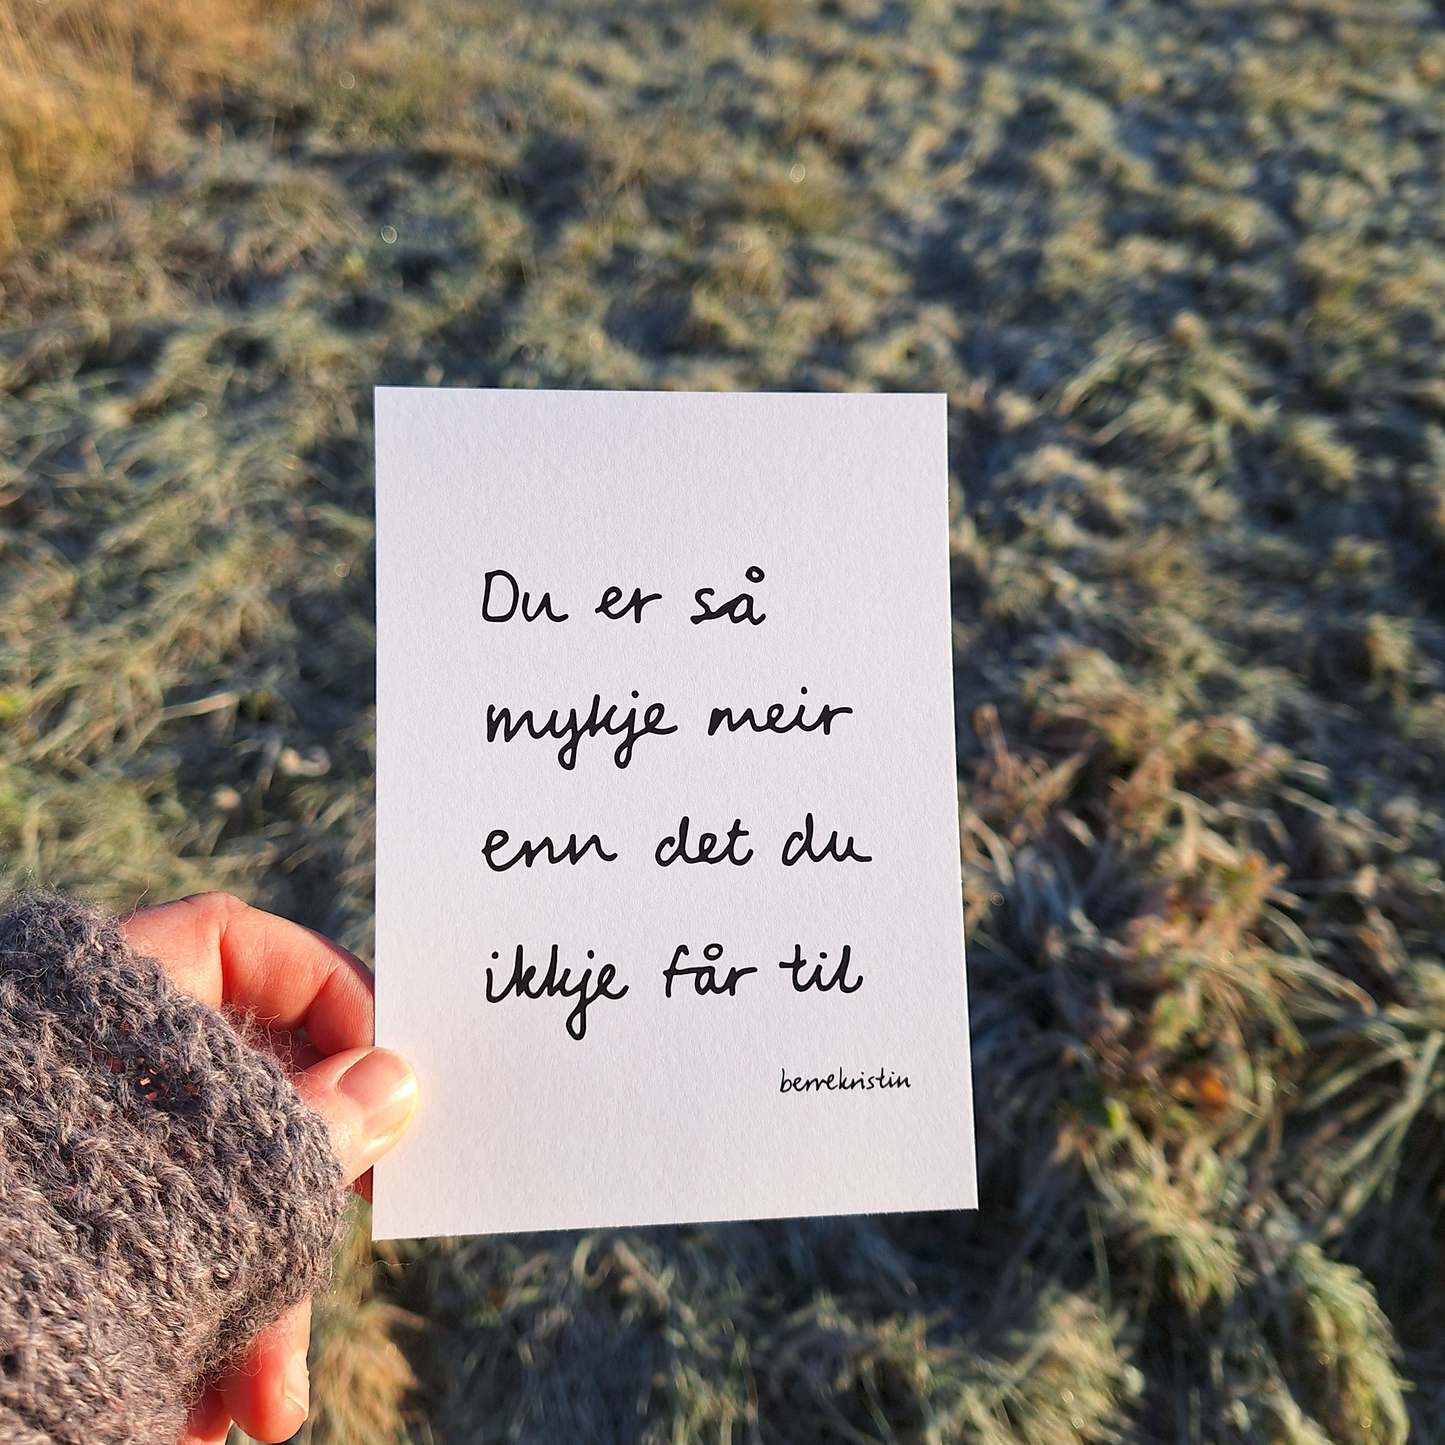 Du er så
mykje meir
enn det du
ikkje får til
berrekristin